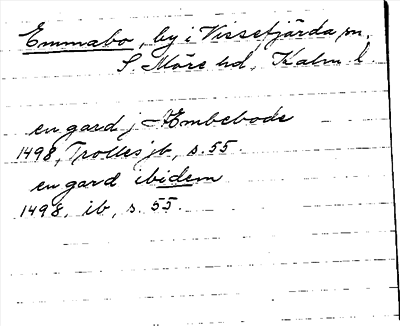 Emmabo, by i Vissefjärda sn,
S. Möre hd, Kalm l.
en gard j Æmbebode
1498, Trolles jb, s. 55.
en gard ibidem
1498, ib, s. 55.